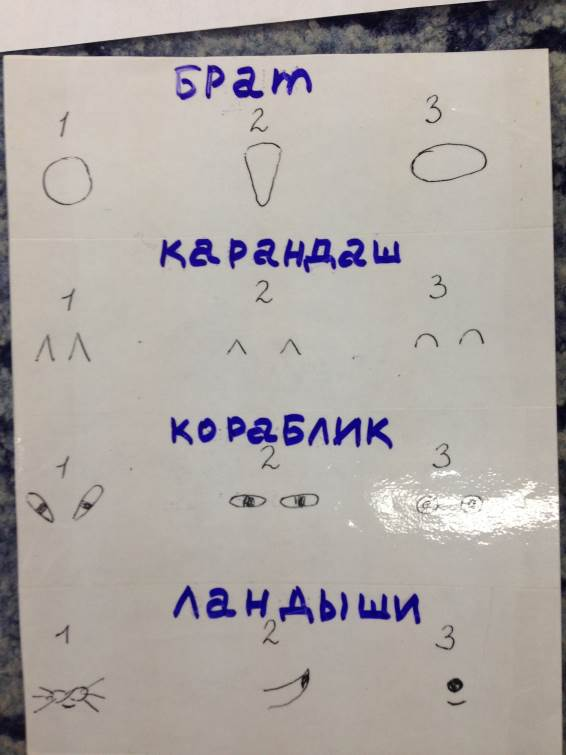 Брат
1 2 3
карандаш
1 2 3
кораблик
1 2 3
ландыши
1 2 3